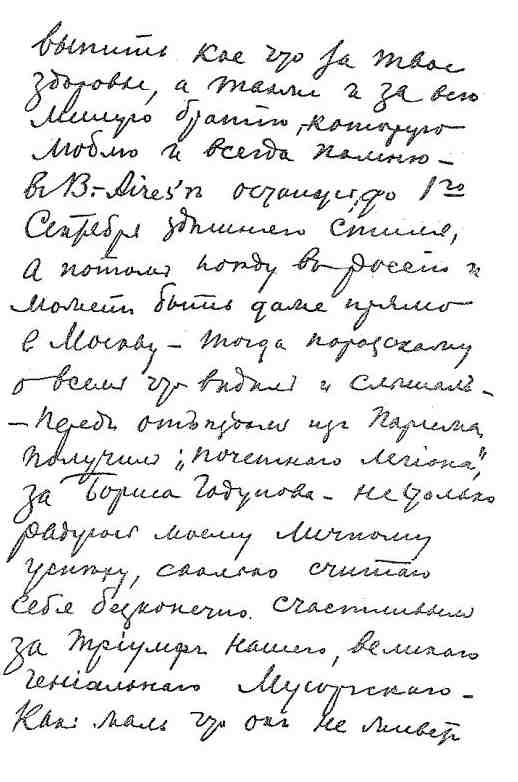 выпить кое что за твое
здоровье, а также и за всю
милую братію, которую
люблю и всегда помню –
въ B.-Aires'ѣ останусь до 1го
Сентября здѣшняго стиля,
а потомъ поѣду въ Росею и
можетъ быть даже прямо
въ Москву – тогда поразскажу
о всемъ что видѣлъ и слышалъ –
– Передъ отъѣздомъ изъ Парижа,
получилъ „почетнаго легіона",
за Бориса Годунова – не столько
радуюсь моему личному
успѣху, сколько считаю
себя безконечно счастливымъ
за тріумфъ нашего, великаго
геніальнаго Мусоргскаго –
Какъ жаль что онъ не живетъ